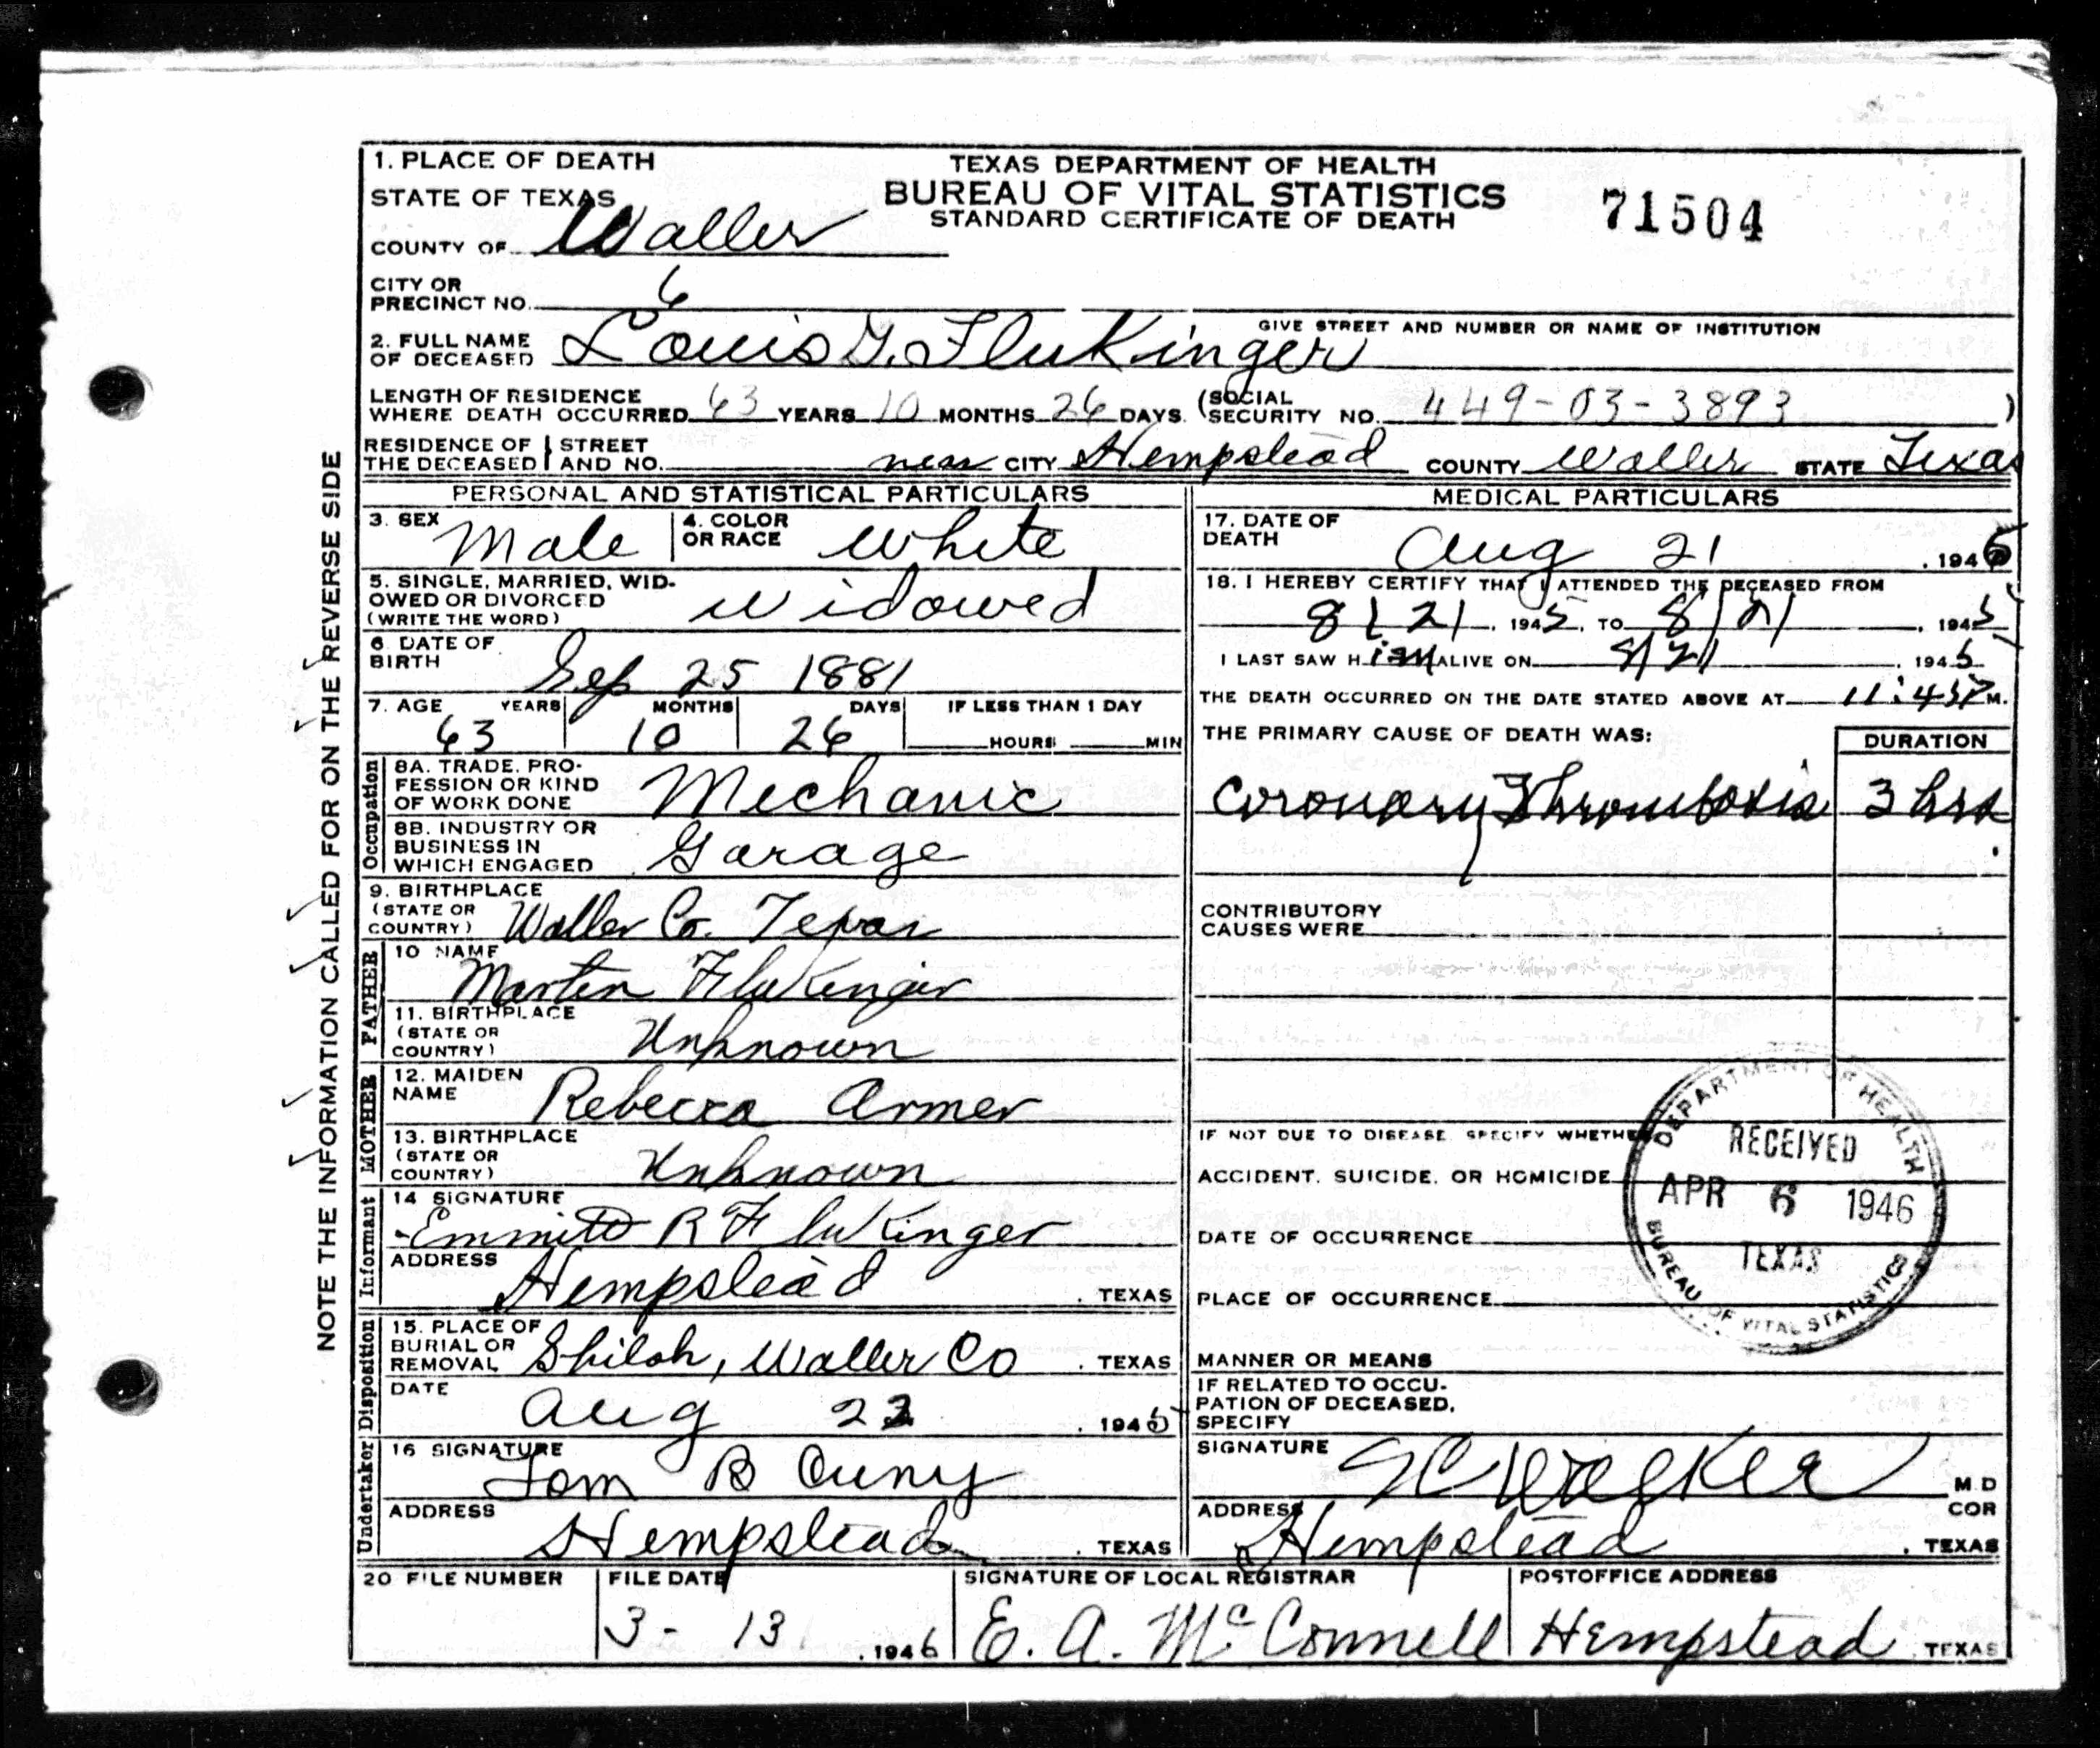 1. PLACE OF DEATH
STATE OF TEXAS
COUNTY OF Waller
TEXAS DEPARTMENT OF HEALTH
BUREAU OF VITAL STATISTICS
STANDARD CERTIFICATE OF DEATH
71504
CITY OR
PRECINCT NO. 6
GIVE STREET AND NUMBER OR NAME OF INSTITUTION
2. FULL NAME
OF DECEASED Louis G. Flukinger
LENGTH OF RESIDENCE
WHERE DEATH OCCURRED 63 YEARS 10 MONTHS 26 DAYS. (SOCIAL
SECURITY NO. 449-03-3893 )
RESIDENCE OF THE DECEASED STREET AND NO. near CITY Hempstead COUNTY Waller STATE Texas
PERSONAL AND STATISTICAL PARTICULARS
3. SEX Male 4. COLOR OR RACE White
5. SINGLE, MARRIED, WID-
OWED OR DIVORCED
(WRITE THE WORD) Widowed
6 DATE OF
BIRTH Sep 25 1881
7. AGE YEARS MONTHS DAYS IF LESS THAN 1 DAY
63 10 26 HOURS MIN
Occupation
8A. TRADE, PRO-
FESSION OR KIND
OF WORK DONE Mechanic
8B. INDUSTRY OR
BUSINESS IN
WHICH ENGAGED Garage
9. BIRTHPLACE
(STATE OR
COUNTRY) Waller Co. Texas
FATHER
10 NAME Martin Flukinger
11. BIRTHPLACE
(STATE OR
COUNTRY) Unknown
MOTHER
12. MAIDEN
NAME Rebecca Armer
13. BIRTHPLACE
(STATE OR
COUNTRY) Unknown
Informant
14 SIGNATURE
Emmitt R Flukinger
ADDRESS
Hempstead , TEXAS
Disposition
15. PLACE OF
BURIAL OR
REMOVAL Shiloh, Waller Co , TEXAS
DATE
Aug 22 , 1945
Undertaker
16 SIGNATURE
Tom B Cuny
ADDRESS
Hempstead , TEXAS
MEDICAL PARTICULARS
17. DATE OF
DEATH Aug 21 , 1945
18. I HEREBY CERTIFY THAT I ATTENDED THE DECEASED FROM
8/21 , 1945, TO 8/21 , 1945
I LAST SAW H im ALIVE ON 8/21 , 1945
THE DEATH OCCURRED ON THE DATE STATED ABOVE AT 11:45 P M.
THE PRIMARY CAUSE OF DEATH WAS: DURATION
Coronary Thrombosis 3 hrs
CONTRIBUTORY
CAUSES WERE
IF NOT DUE TO DISEASE, SPECIFY WHETHER
ACCIDENT, SUICIDE, OR HOMICIDE
DATE OF OCCURRENCE
PLACE OF OCCURRENCE
MANNER OR MEANS
IF RELATED TO OCCU-
PATION OF DECEASED,
SPECIFY
DEPARTMENT OF HEALTH
RECEIVED
APR 6 1946
TEXAS
BUREAU OF VITAL STATISTICS
SIGNATURE Walker M D
COR
ADDRESS
Hempstead , TEXAS
20 FILE NUMBER FILE DATE SIGNATURE OF LOCAL REGISTRAR POSTOFFICE ADDRESS
3 - 13 , 1946 E. A. McConnell Hempstead , TEXAS
NOTE THE INFORMATION CALLED FOR ON THE REVERSE SIDE